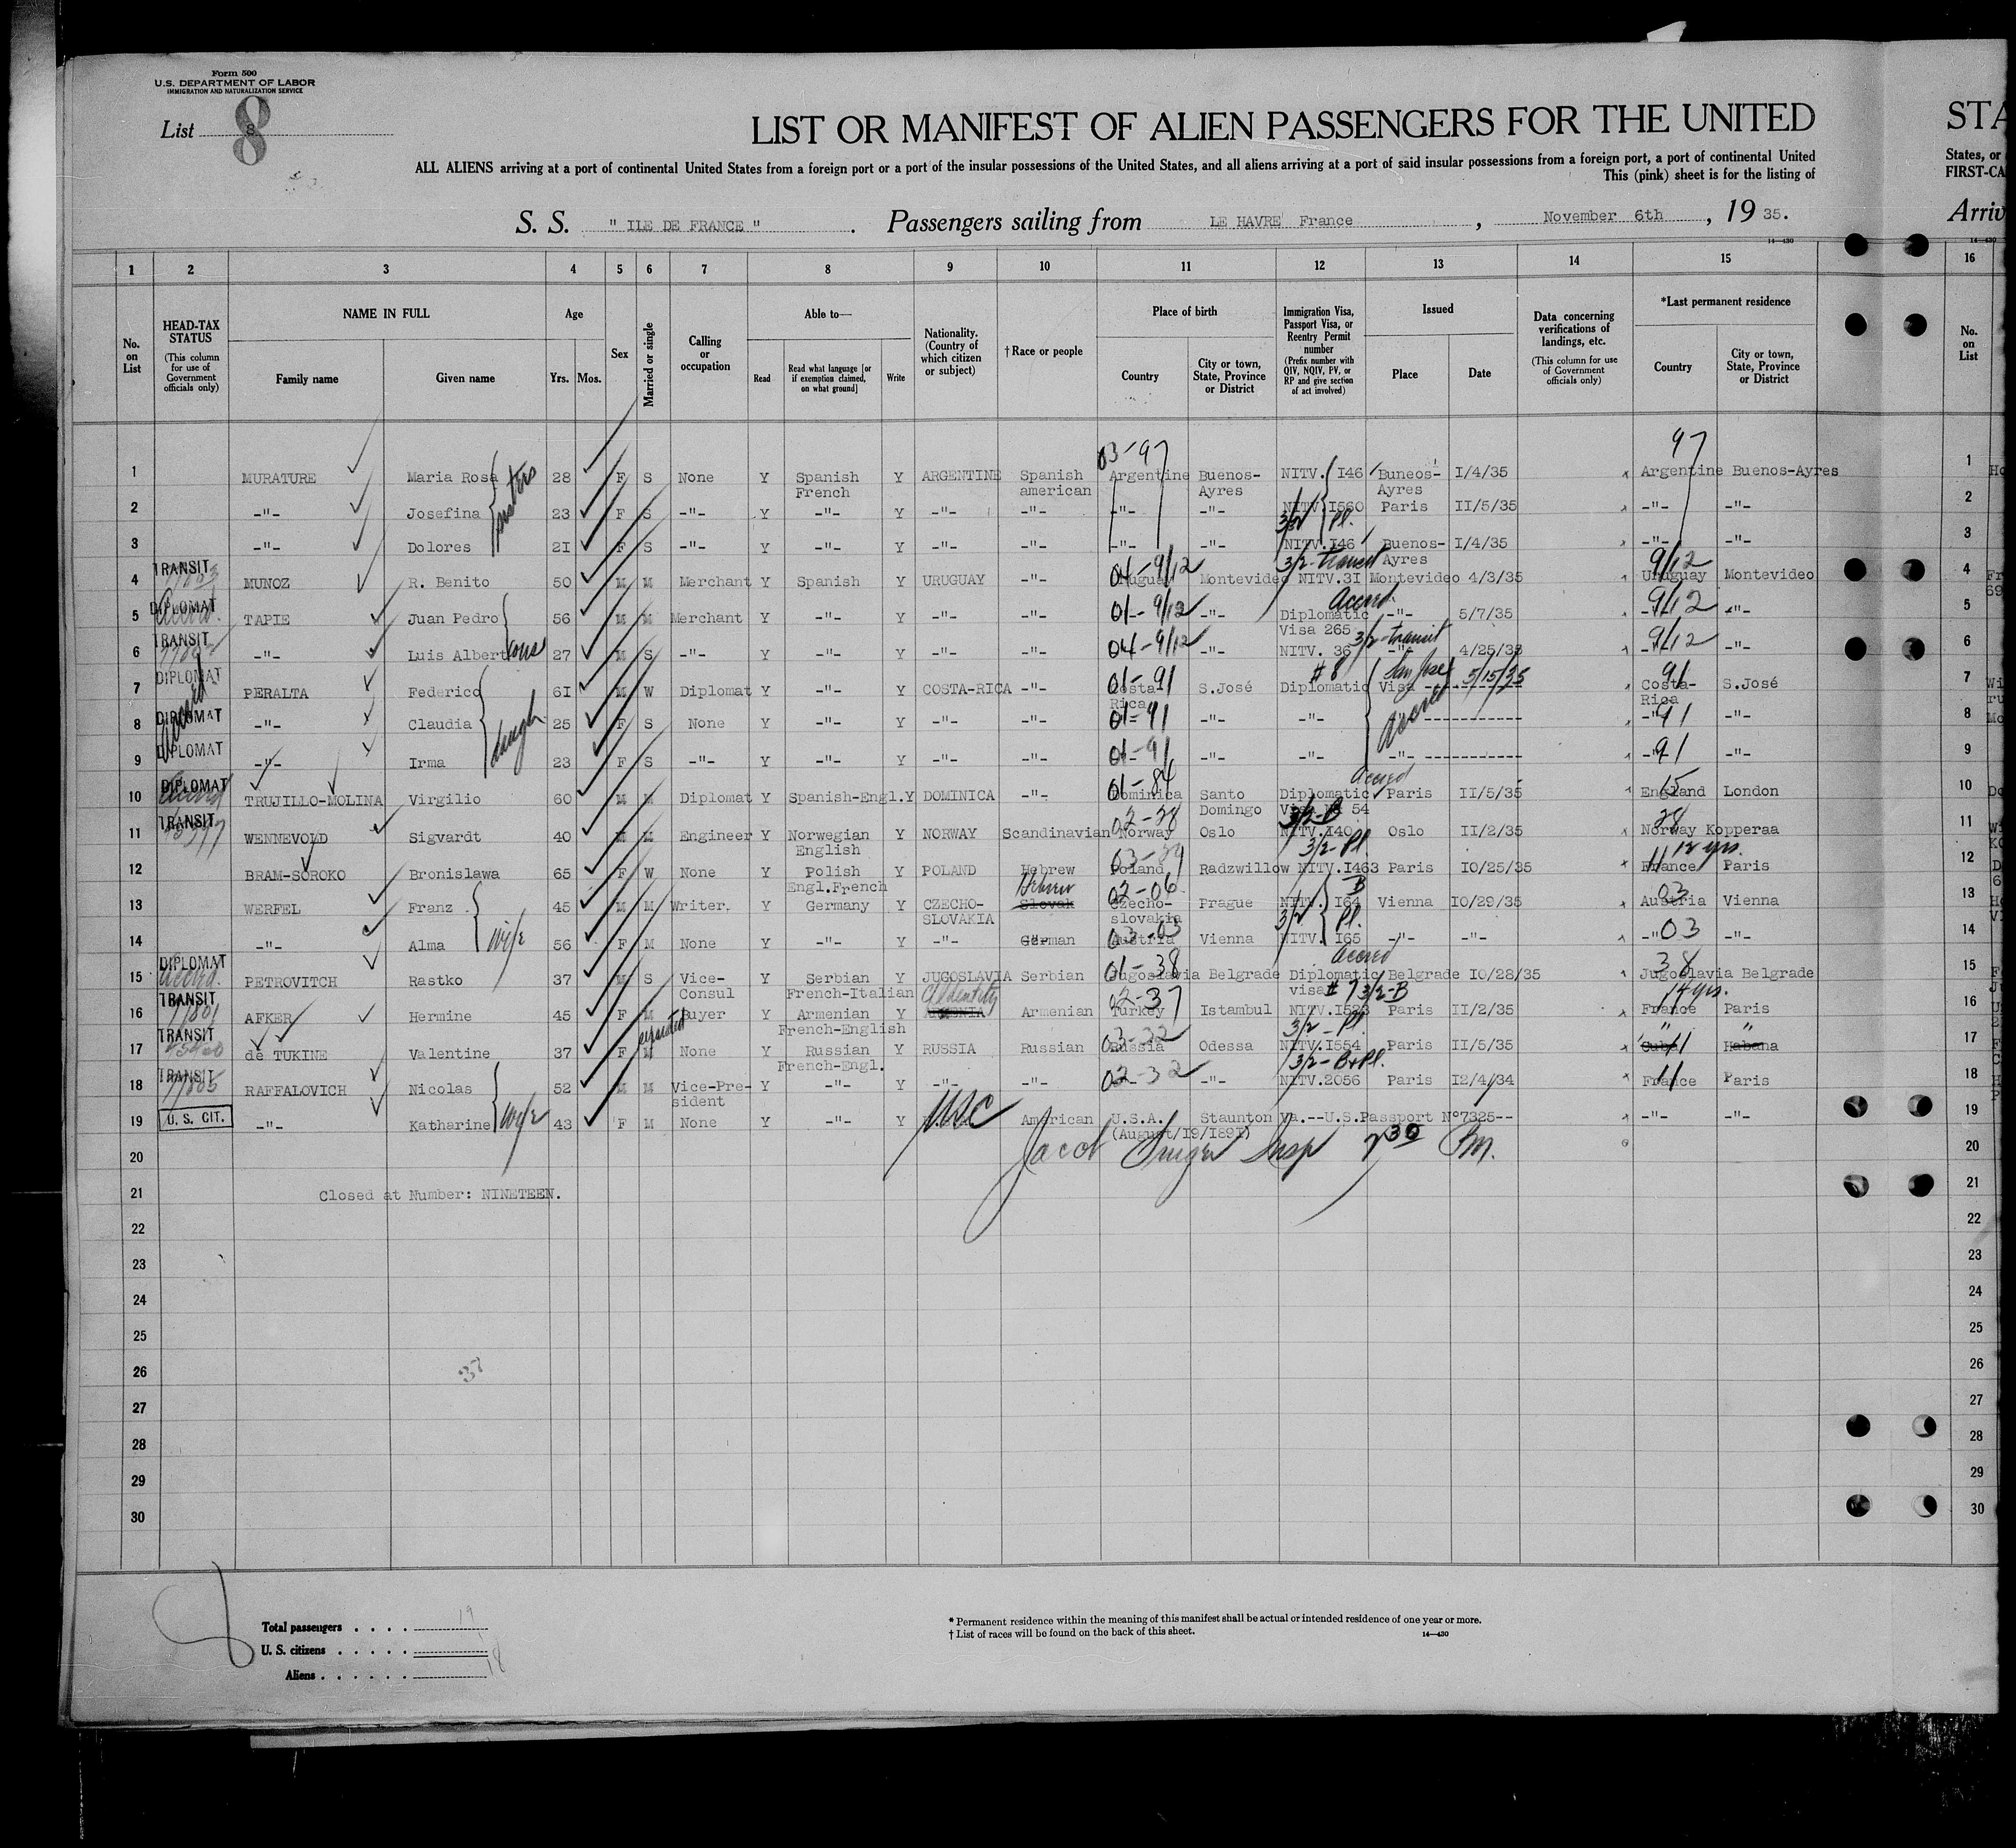 Form 500
U.S. DEPARTMENT OF LABOR
IMMIGRATION AND NATURALIZATION SERVICE
List 8
8
LIST OR MANIFEST OF ALIEN PASSENGERS FOR THE UNITED
STA
ALL ALIENS arriving at a port of continental United States from a foreign port or a port of the insular possessions of the United States, and all aliens arriving at a port of said insular possessions from a foreign port, a port of continental United
States, or
This (pink) sheet is for the listing of
FIRST-CA
S. S. " ILE DE FRANCE " . Passengers sailing from LE HAVRE France , November 6th , 19 35.
Arriv
14—430
1 2 3 4 5 6 7 8 9 10 11 12 13 14 15 16
No. on List
HEAD-TAX STATUS
(This column for use of Government officials only)
NAME IN FULL
Family name Given name
Age
Yrs. Mos.
Sex
Married or single
Calling or occupation
Able to—
Read
Read what language [or if exemption claimed, on what ground]
Write
Nationality. (Country of which citizen or subject)
†Race or people
Place of birth
Country
City or town, State, Province or District
Immigration Visa, Passport Visa, or Reentry Permit number
(Prefix number with QIV, NQIV, PV, or RP and give section of act involved)
Issued
Place Date
Data concerning verifications of landings, etc.
(This column for use of Government officials only)
*Last permanent residence
Country
City or town, State, Province or District
No. on List
03-97 97
1 MURATURE Maria Rosa 28 F S None Y Spanish Y ARGENTINE Spanish Argentine Buenos- NITV. I46 Buneos- I/4/35 Argentine Buenos-Ayres 1
French american Ayres Ayres
sisters
2 -"- Josefina 23 F S -"- Y -"- Y -"- -"- -"- -"- NITV.I560 Paris II/5/35 -"- -"- 2
3/2 Pl.
3 -"- Dolores 2I F S -"- Y -"- Y -"- -"- -"- -"- NITV.I46 Buenos- I/4/35 -"- -"- 3
TRANSIT 04-9/12 3/2-transit Ayres 9/12
4 MUNOZ R. Benito 50 M M Merchant Y Spanish Y URUGUAY -"- Uruguay Montevideo NITV.3I Montevideo 4/3/35 Uruguay Montevideo 4
DIPLOMAT Accred. 01-9/12 Accred. 9/12
5 TAPIE Juan Pedro 56 M M Merchant Y -"- Y -"- -"- -"- Diplomatic -"- 5/7/35 -"- -"- 5
Visa 265
TRANSIT 04-9/12 3/2-transit 9/12
6 -"- Luis Albert sons 27 M S -"- Y -"- Y -"- -"- -"- NITV. 36 -"- 4/25/35 -"- -"- 6
DIPLOMAT 01-91 #8 San José 5/15/35 91
7 PERALTA Federico 6I M W Diplomat Y -"- Y COSTA-RICA -"- Costa Rica S.José Diplomatic Visa Costa-Rica S.José 7
DIPLOMAT Accred 01-91 Accred 91
8 -"- Claudia daugh 25 F S None Y -"- Y -"- -"- -"- -"- -"- -"- 8
DIPLOMAT 01-91 91
9 -"- Irma 23 F S -"- Y -"- Y -"- -"- -"- -"- -"- -"- -"- 9
DIPLOMAT Accred 01-84 Accred 15
10 TRUJILLO-MOLINA Virgilio 60 M M Diplomat Y Spanish-Engl.Y DOMINICA -"- Dominica Santo Diplomatic Paris II/5/35 England London 10
Domingo 54
TRANSIT 02-28 3/2-B 28
11 WENNEVOLD Sigvardt 40 M M Engineer Y Norwegian Y NORWAY Scandinavian Norway Oslo NITV.I40 Oslo II/2/35 Norway Kopperaa 11
English 3/2-Pl 12 yrs.
12 BRAM-SOROKO Bronislawa 65 F W None Y Polish Y POLAND Hebrew Poland Radzwillow NITV.I463 Paris IO/25/35 France Paris 12
Engl.French Hebrew 02-06 B 11 03
13 WERFEL Franz 45 M M Writer. Y Germany Y CZECHO- Slovak Czecho- Prague NITV. I64 Vienna IO/29/35 Austria Vienna 13
SLOVAKIA slovakia 3/2 Pl.
03-03 03
14 -"- Alma wife 56 F M None Y -"- Y -"- German Austria Vienna NITV. I65 -"- -"- -"- -"- 14
DIPLOMAT Accred. 01-38 Accred 38
15 PETROVITCH Rastko 37 M S Vice- Y Serbian Y JUGOSLAVIA Serbian Jugoslavia Belgrade Diplomatic Belgrade IO/28/35 Jugoslavia Belgrade 15
Consul French-Italian visa #7 3/2-B 14 yrs.
TRANSIT 02-37
16 AFKER Hermine 45 F M Buyer Y Armenian Y Armenian Turkey Istambul NITV.I523 Paris II/2/35 France Paris 16
French-English 3/2-Pl
TRANSIT separated " "
17 de TUKINE Valentine 37 F M None Y Russian Y RUSSIA Russian Russia Odessa NITV.I554 Paris II/5/35 Cuba 11 Habana 17
French-Engl. 3/2-B&Pl.
TRANSIT 02-32 11
18 RAFFALOVICH Nicolas 52 M M Vice-Pre- Y -"- Y -"- -"- -"- NITV.2056 Paris I2/4/34 France Paris 18
sident
U. S. CIT. USC
19 -"- Katherine wife 43 F M None Y -"- Y American U.S.A. Staunton Va.--U.S.Passport N°7325-- -"- -"- 19
(August/I9/I89I)
20 Jacob Insp 7 30 Pm. 20
21 Closed at Number: NINETEEN. 21
22 22
23 23
24 24
25 25
26 37 26
27 27
28 28
29 29
30 30
Total passengers . . . . 19
U. S. citizens . . . . . 1
Aliens . . . . . . 18
* Permanent residence within the meaning of this manifest shall be actual or intended residence of one year or more.
† List of races will be found on the back of this sheet.
14—430